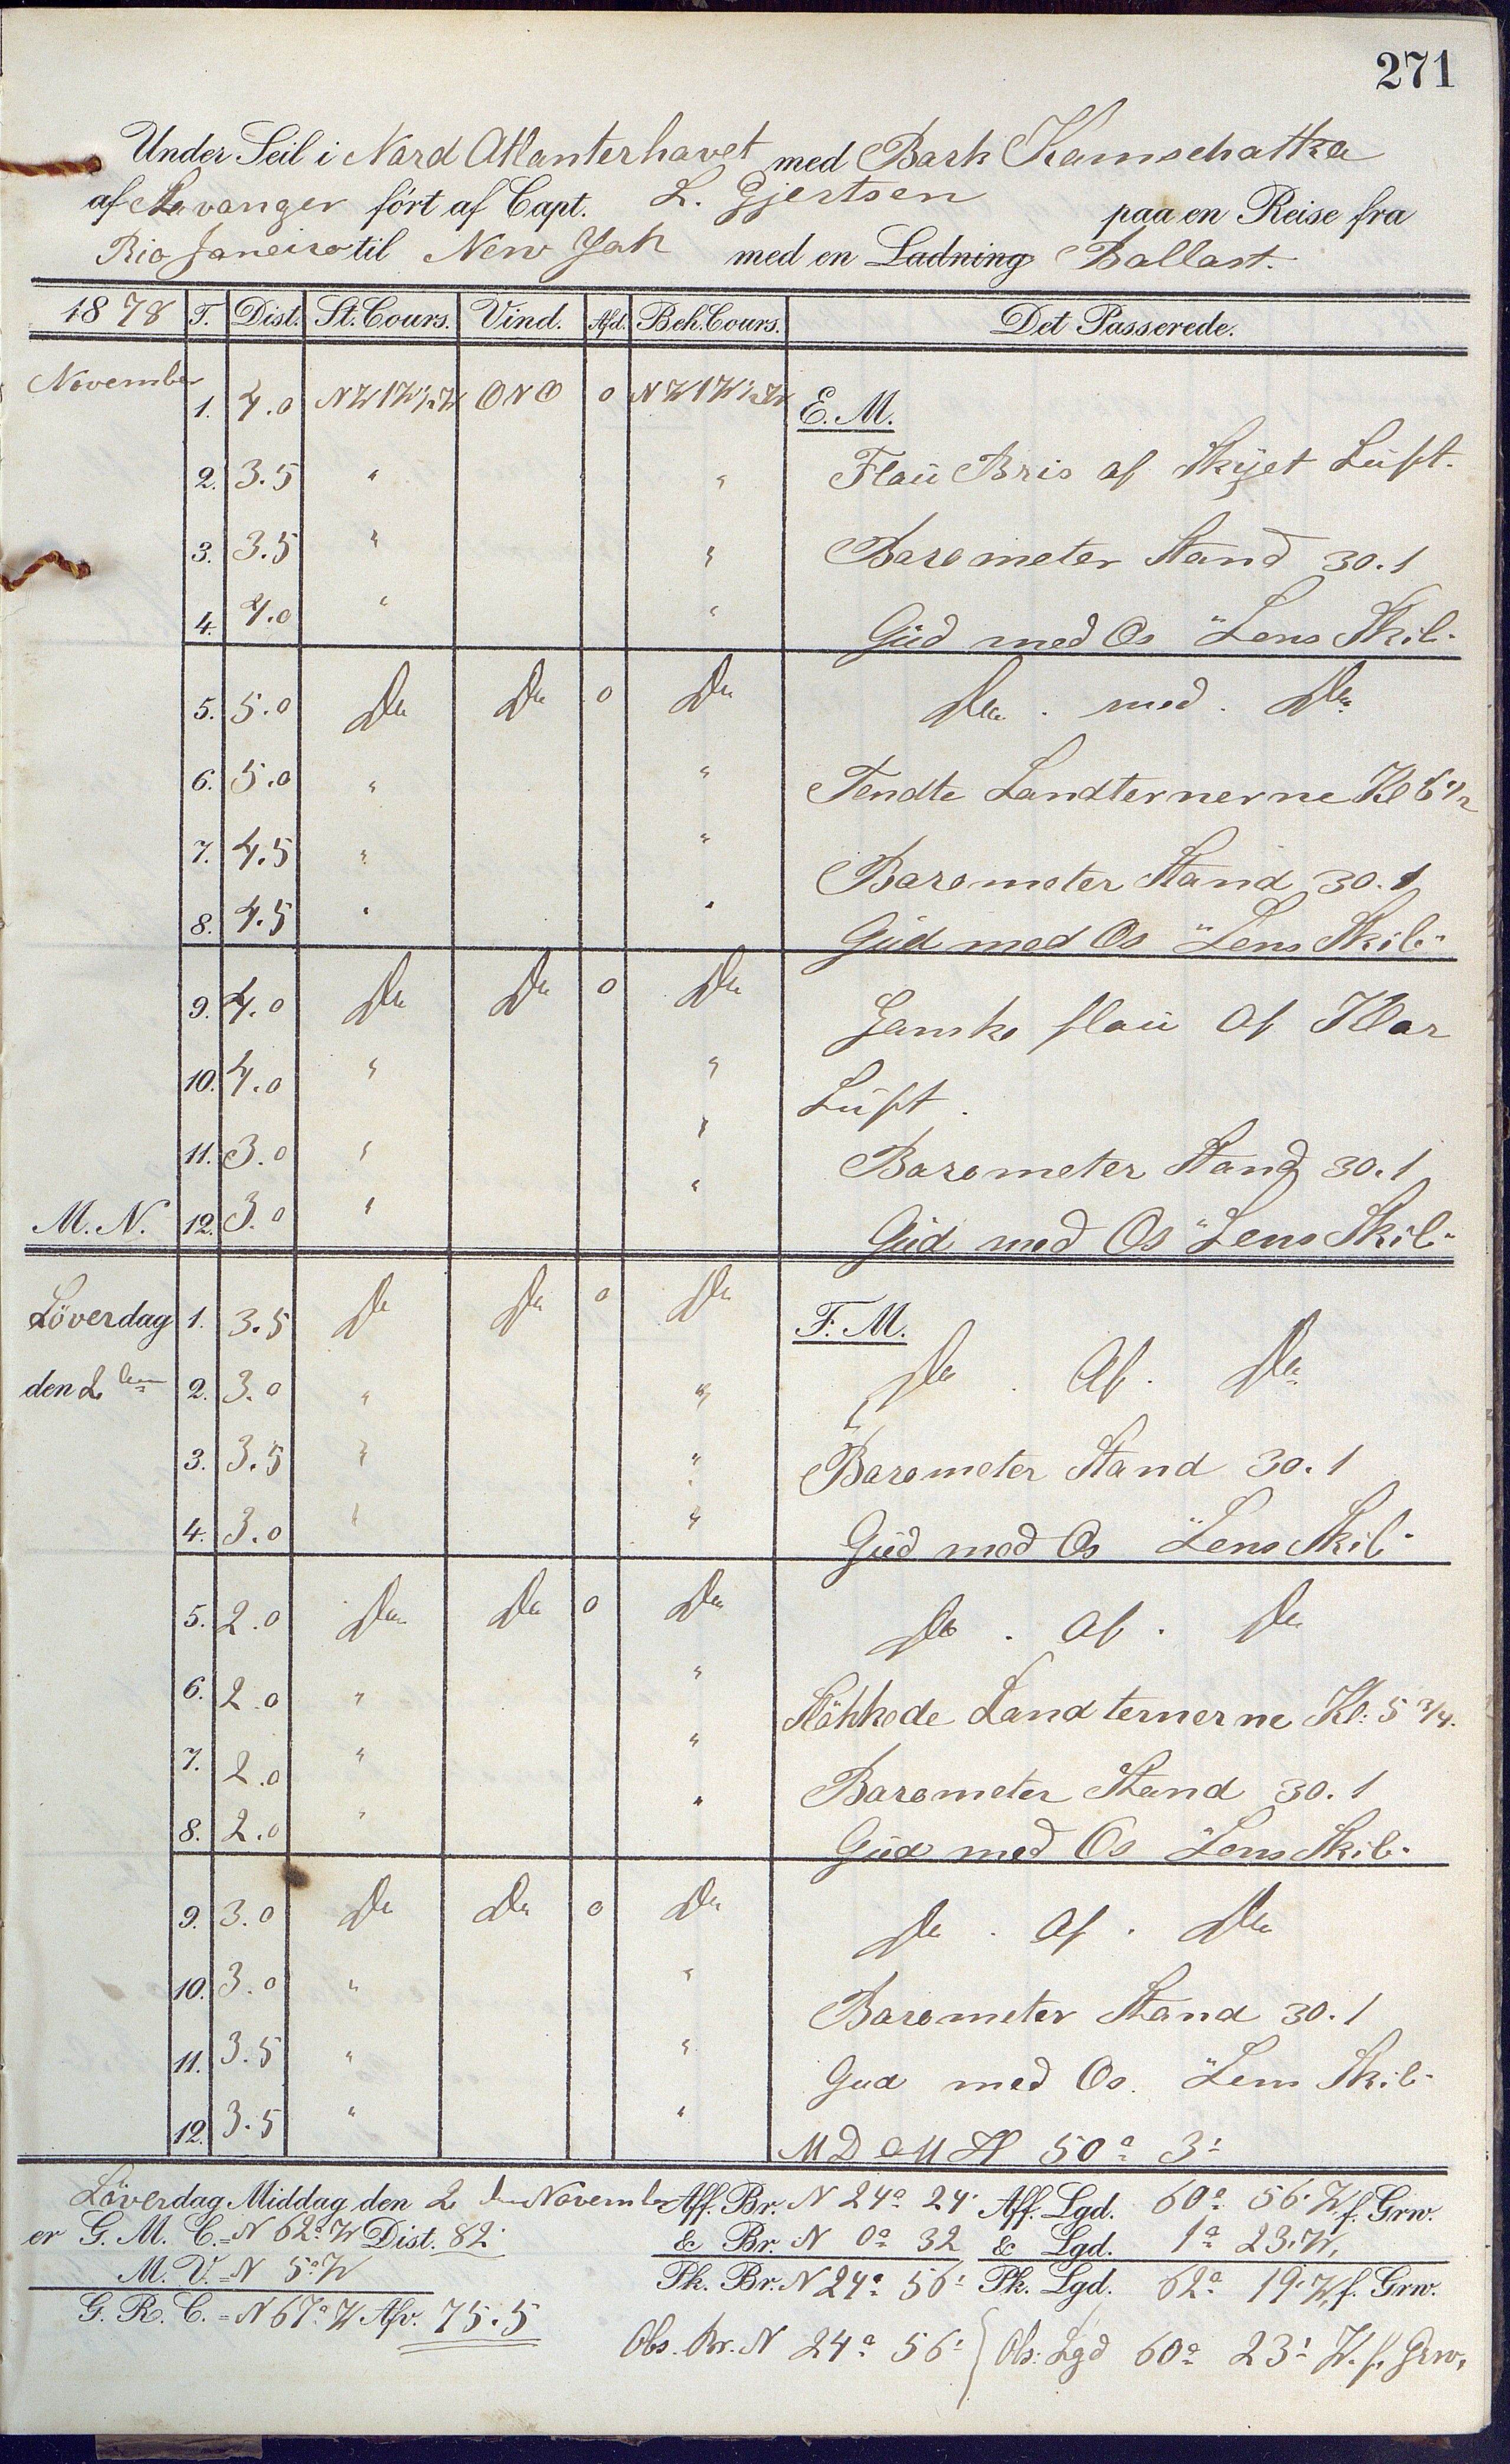 271
Under Seil i Nord Atlanterhavet med Bark Kamschatka
af Levanger fört af Capt. L. Gjertsen paa en Reise fra
Rio Janeiro til New York med en Ladning Ballast.
1878 T. Dist. St. Cours. Vind. Afd. Beh. Cours. Det Passerede.
November 1. 4.0 NWtW½W ONO 0 NWtW½W E. M.
2. 3.5 " " Flaü Bris af Skyet Lüft.
3. 3.5 " " Barometer Stand 30.1
4. 4.0 " " Güd med Os "Lens Skib"
5. 5.0 Do Do 0 Do Do. med. Do
6. 5.0 " " Tendte Landternerne Kl 6½
7. 4.5 " " Barometer Stand 30.1
8. 4.5 " " Güd med Os "Lens Skib"
9. 4.0 Do Do 0 Do Ganske flaü Af Klar
10. 4.0 " " Lüft.
11. 3.0 " " Barometer Stand 30.1
M. N. 12. 3.0 " " Güd med Os "Lens Skib"
Löverdag 1. 3.5 Do Do 0 Do F. M.
den 2 den 2. 3.0 " " Do. Af. Do
3. 3.5 " " Barometer Stand 30.1
4. 3.0 " " Güd med Os "Lens Skib"
5. 2.0 Do Do 0 Do Do. Af. Do
6. 2.0 " " Slökkede Landternerne Kl: 5 3/4.
7. 2.0 " " Barometer Stand 30.1
8. 2.0 " " Güd med Os "Lens Skib"
9. 3.0 Do Do 0 Do Do. Af. Do
10. 3.0 " " Barometer Stand 30.1
11. 3.5 " " Gud med Os. "Lens Skib"
12. 3.5 " " 50° 3'
Löverdag Middag den 2 den November Aff. Br. N 24° 24' Aff. Lgd. 60° 56' W f. Grw.
er G. M. C. = N 62° W Dist. 82' & Br. N 0° 32 & Lgd. 1° 23' W,
M. V. = N 5° W Pk. Br. N 24° 56' Pk. Lgd. 62° 19' W, f. Grw.
G. R. C. = N 67° W Afv. 75.5
Obs. Br. N 24° 56' } Obs: Lgd 60° 23' W. f. Grw,